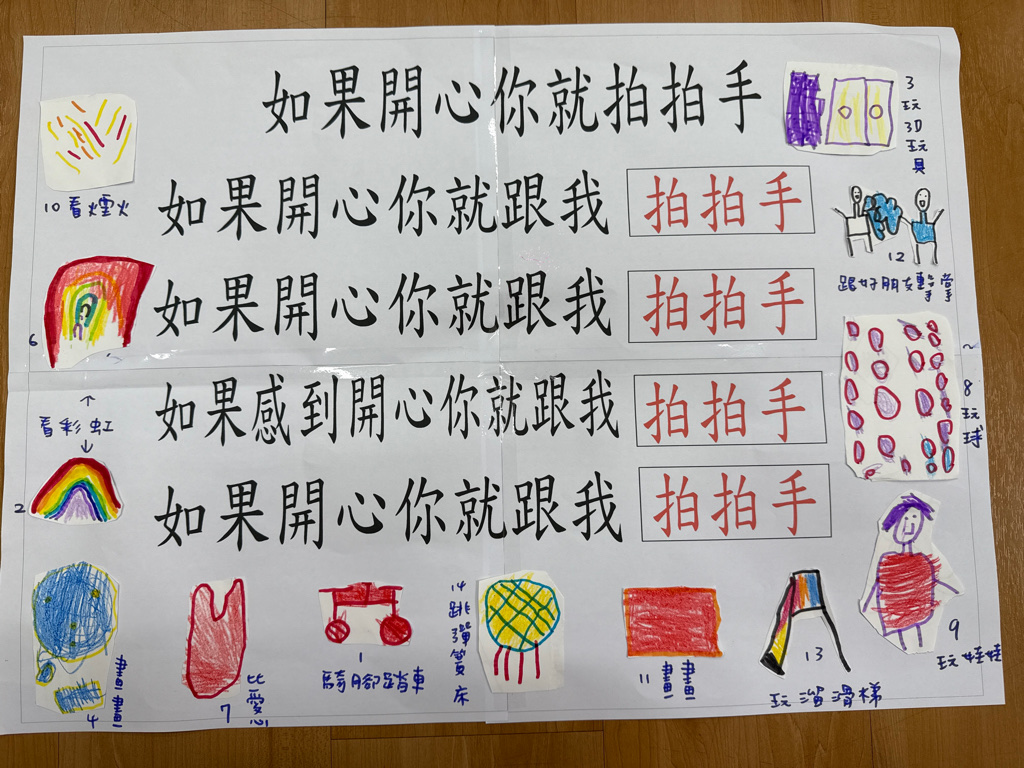 如果開心你就拍拍手
如果開心你就跟我 拍拍手
如果開心你就跟我 拍拍手
如果感到開心你就跟我 拍拍手
如果開心你就跟我 拍拍手
10 看煙火
6
看彩虹
2
3 玩3D玩具
12
跟好朋友擊掌
8 玩球
9
玩娃娃
4 畫畫
7 比愛心
1
騎腳踏車
14 跳彈簧床
11 畫畫
13
玩溜滑梯